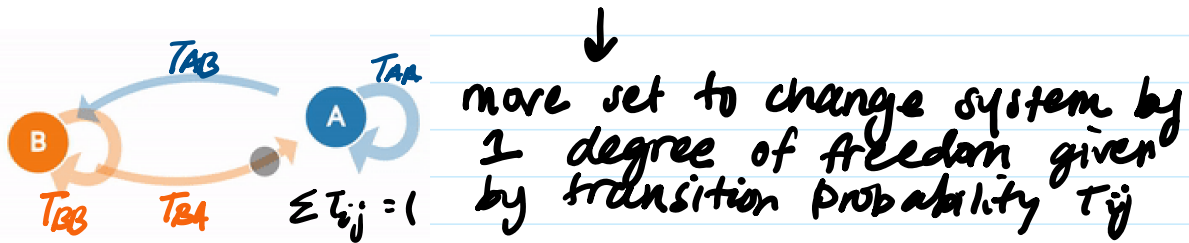 TAB
TAA
A
B
TBB
TBA
Σ Tij = 1
↓
move set to change system by
1 degree of freedom given
by transition probability Tij